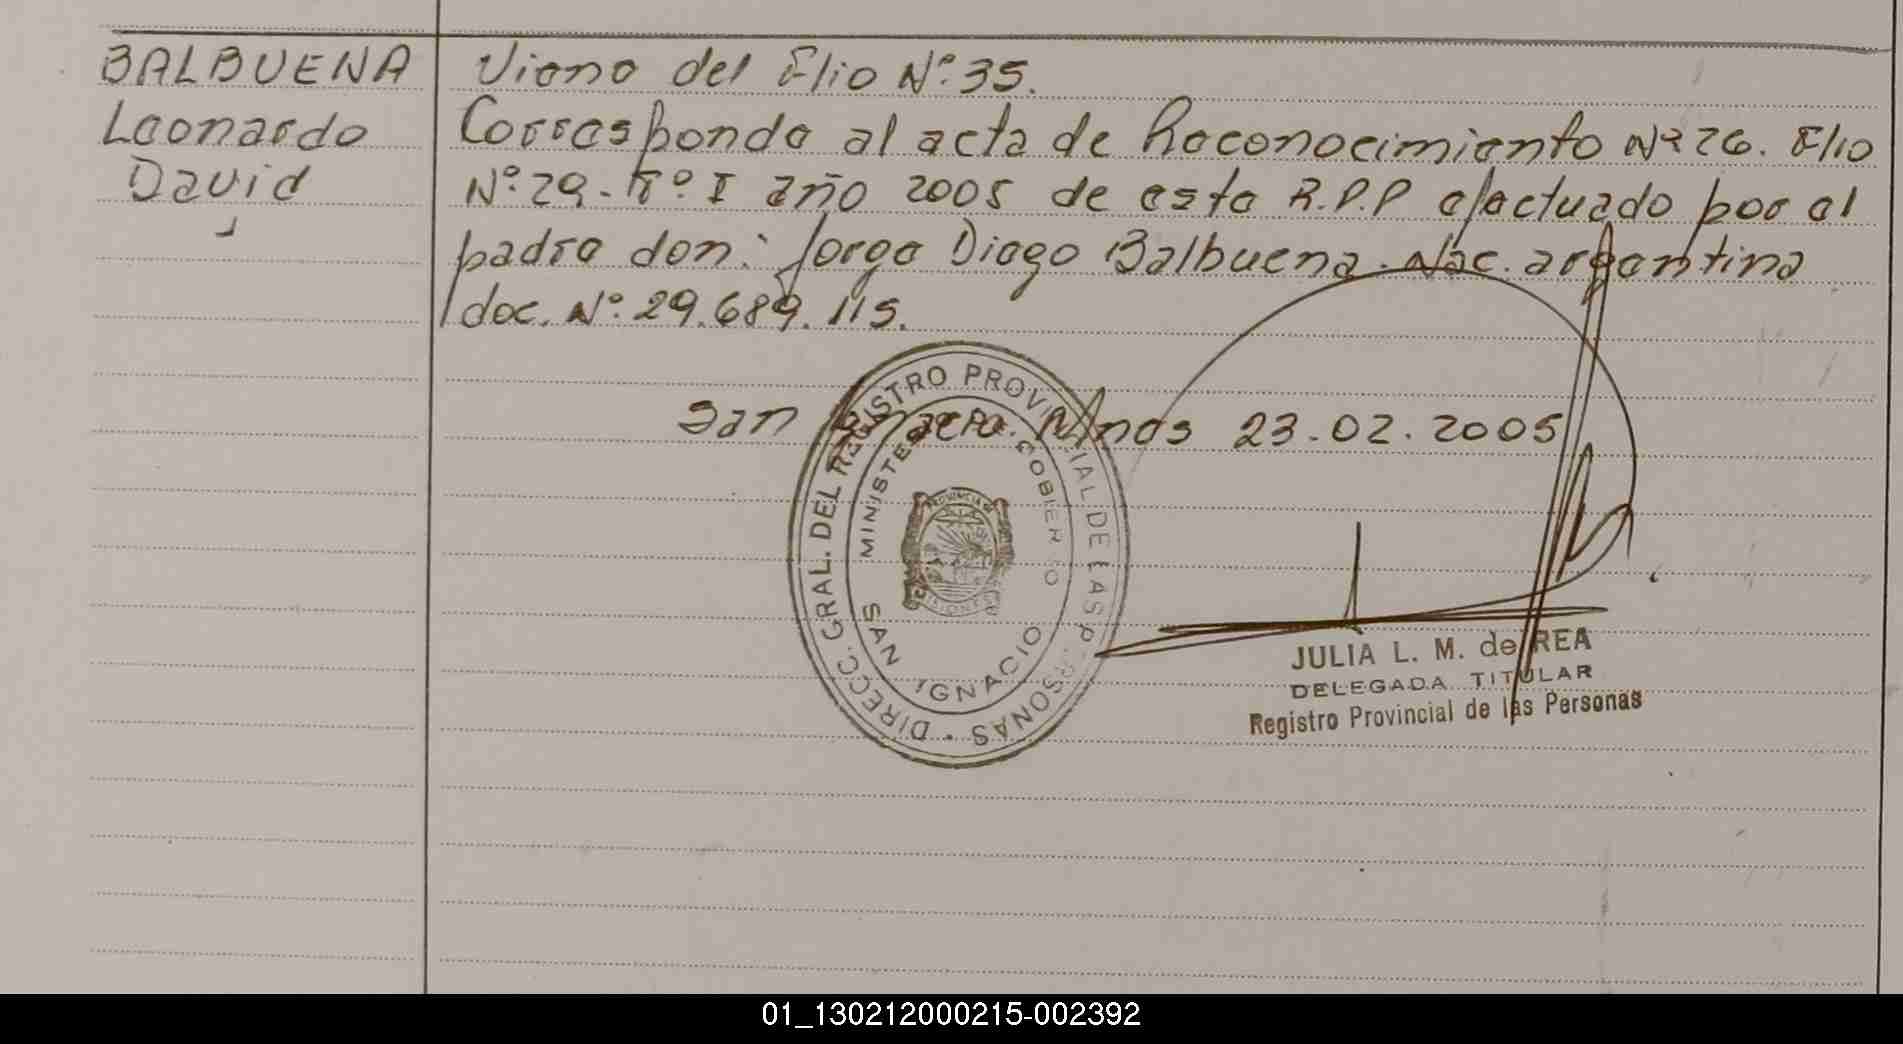 BALBUENA
Leonardo
David
Viene del Flio Nº 35.
Corresponde al acta de Reconocimiento Nº 26. Flio
Nº 29 - Tº I año 2005 de este R.P.P efectuado por el
padre don: Jorge Diego Balbuena. Nac. argentina
doc. Nº 29.689.115.
San Ignacio. Mnes 23.02.2005
DIRECC. GRAL. DEL REGISTRO PROVINCIAL DE LAS PERSONAS
MINISTERIO GOBIERNO
SAN IGNACIO
PROVINCIA DE
MISIONES
JULIA L. M. de REA
DELEGADA TITULAR
Registro Provincial de las Personas
01_130212000215-002392